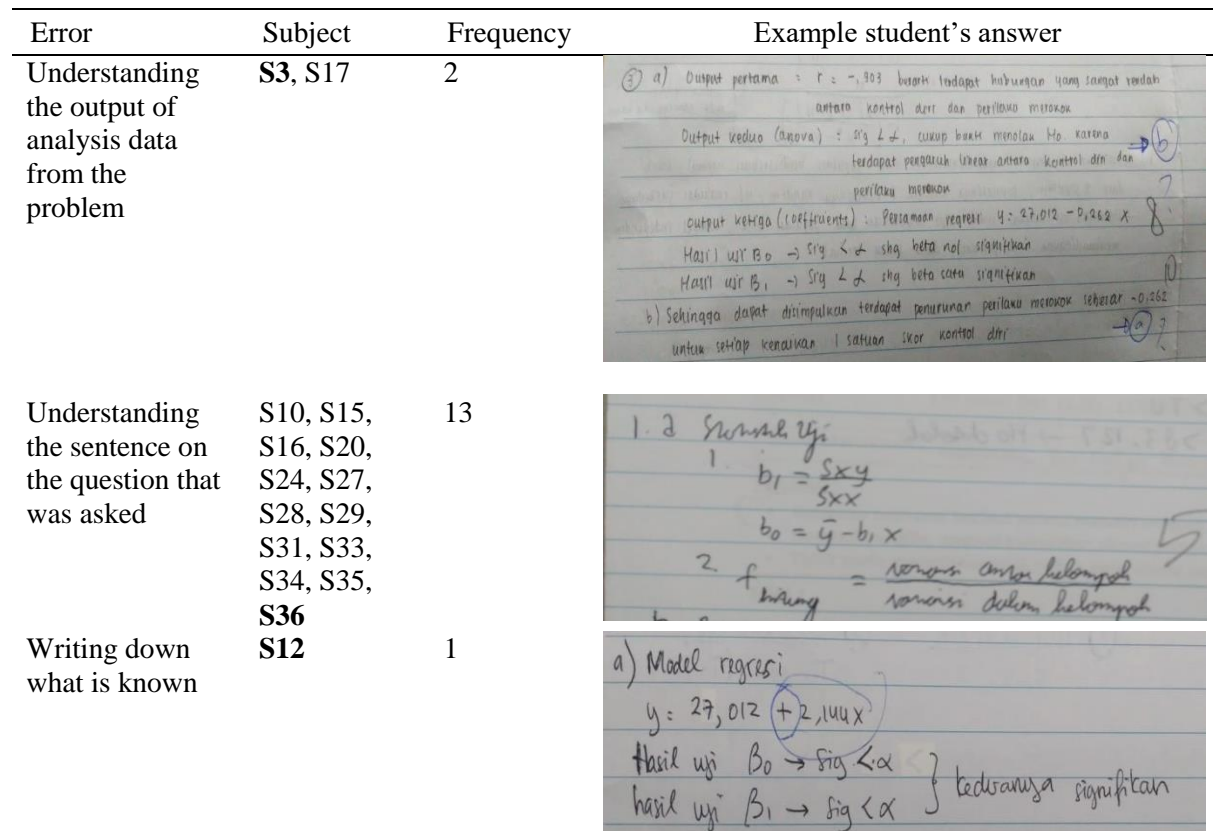 Error Subject Frequency Example student's answer
Understanding the output of analysis data from the problem
S3, S17
2
③ a) Output pertama : r = -,903 berarti terdapat hubungan yang sangat rendah
antara kontrol diri dan perilaku merokok
Output kedua (anova) : sig < α, cukup bukti menolak Ho karena
terdapat pengaruh linear antara kontrol diri dan
perilaku merokok
b
output ketiga (coefficients) : Persamaan regresi y = 27,012 - 0,262 x
8
Hasil uji B0 → sig < α shg beta nol signifikan
Hasil uji B1 → sig < α shg beta satu signifikan
10
b) Sehingga dapat disimpulkan terdapat penurunan perilaku merokok sebesar -0,262
untuk setiap kenaikan 1 satuan skor kontrol diri
a ?
Understanding the sentence on the question that was asked
S10, S15, S16, S20, S24, S27, S28, S29, S31, S33, S34, S35, S36
13
1. a
uji
1. b1 = Sxy / Sxx
b0 = ȳ - b1 x
5
2 f hitung = variansi antar kelompok / variansi dalam kelompok
Writing down what is known
S12
1
a) Model regresi
y = 27,012 + 2,144x
Hasil uji β0 → sig < α
hasil uji β1 → sig < α } keduanya signifikan